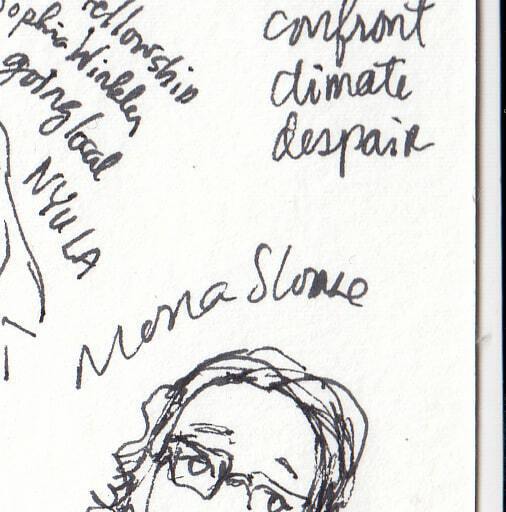 fellowship
Sophia Winkler
going local
NYU LA
confront
climate
despair
Mona Sloane